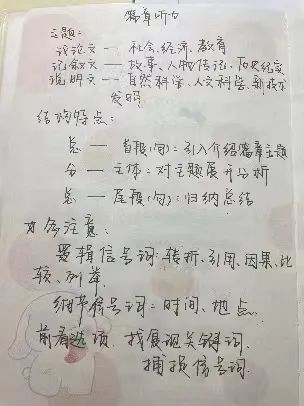 篇章听力
主题:
议论文 — 社会、经济、教育
记叙文 — 故事、人物传记、历史纪实
说明文 — 自然科学、人文科学、新技术
发明
结构特点:
总 — 首段(句):引入介绍篇章主题
分 — 主体:对主题展开分析
总 — 尾段(句):归纳总结
务注意:
逻辑信号词:转折、引用、因果、比
较、列举
细节信号词:时间、地点
前看选项、找复现关键词、
捕捉信号词.